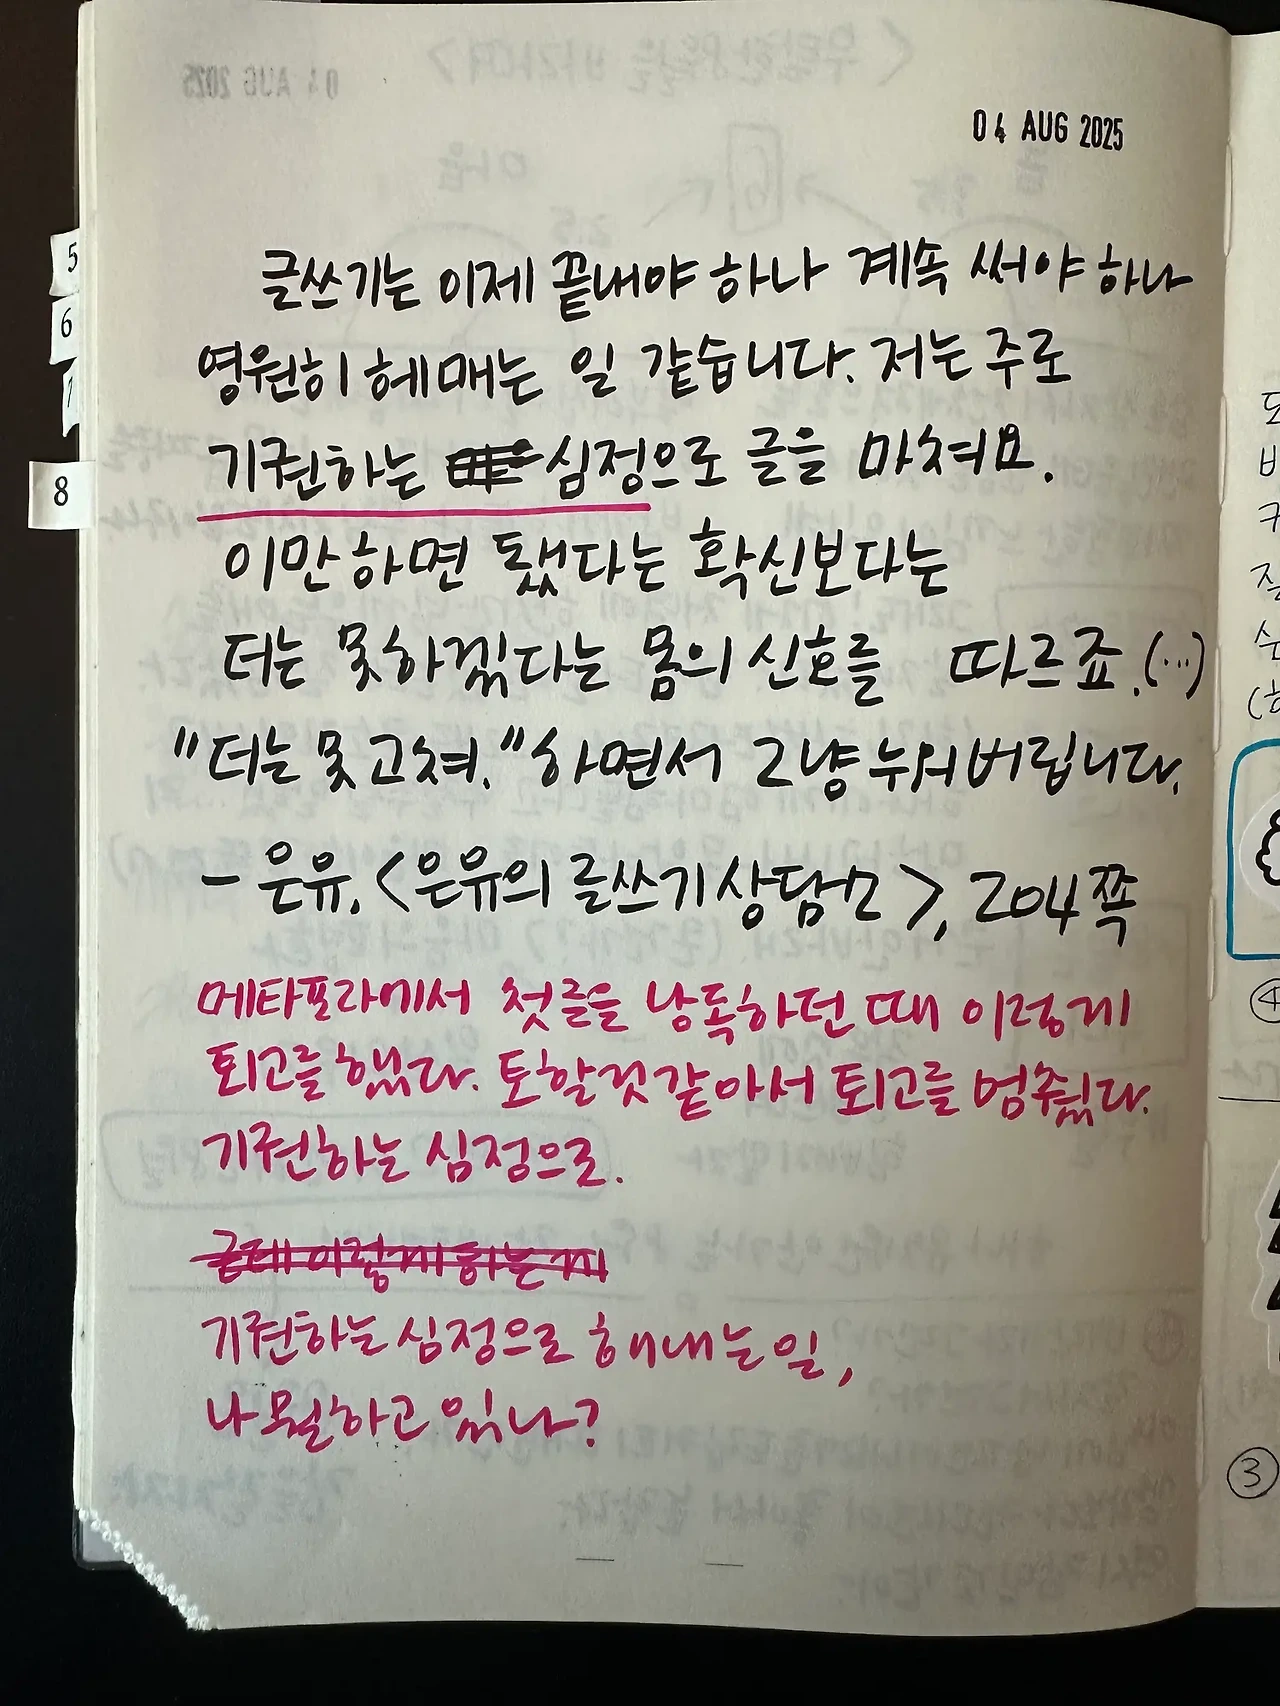 04 AUG 2025
글쓰기는 이제 끝내야 하나 계속 써야 하나
영원히 헤매는 일 같습니다. 저는 주로
기권하는 심정으로 글을 마쳐요.
이만하면 됐다는 확신보다는
더는 못하겠다는 몸의 신호를 따르죠.(…)
"더는 못 고쳐." 하면서 그냥 누워버립니다.
- 은유, <은유의 글쓰기 상담소>, 204쪽
메타포라에서 첫글을 낭독하던 때 이렇게
퇴고를 했다. 토할것 같아서 퇴고를 멈췄다.
기권하는 심정으로.
근데 이렇게 하는 게
기권하는 심정으로 해내는 일,
나 뭘 하고 있나?
5
6
7
8
④
③